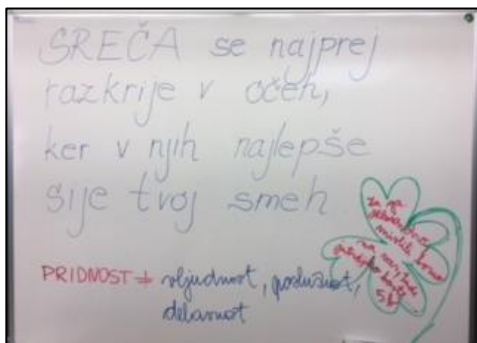 SREČA se najprej
razkrije v očeh,
ker v njih najlepše
sije tvoj smeh
PRIDNOST → vljudnost, poslušnost,
delavnost
za
mislili bomo
na
5.b